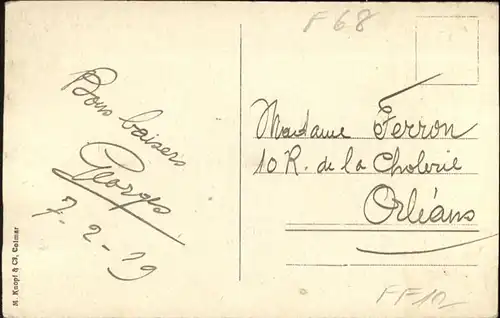 F68
Bons baisers
Georges
7-2-19
Madame Ferron
10 R. de la Cholerie
Orléans
FF10
M. Knopf & Cie, Colmar